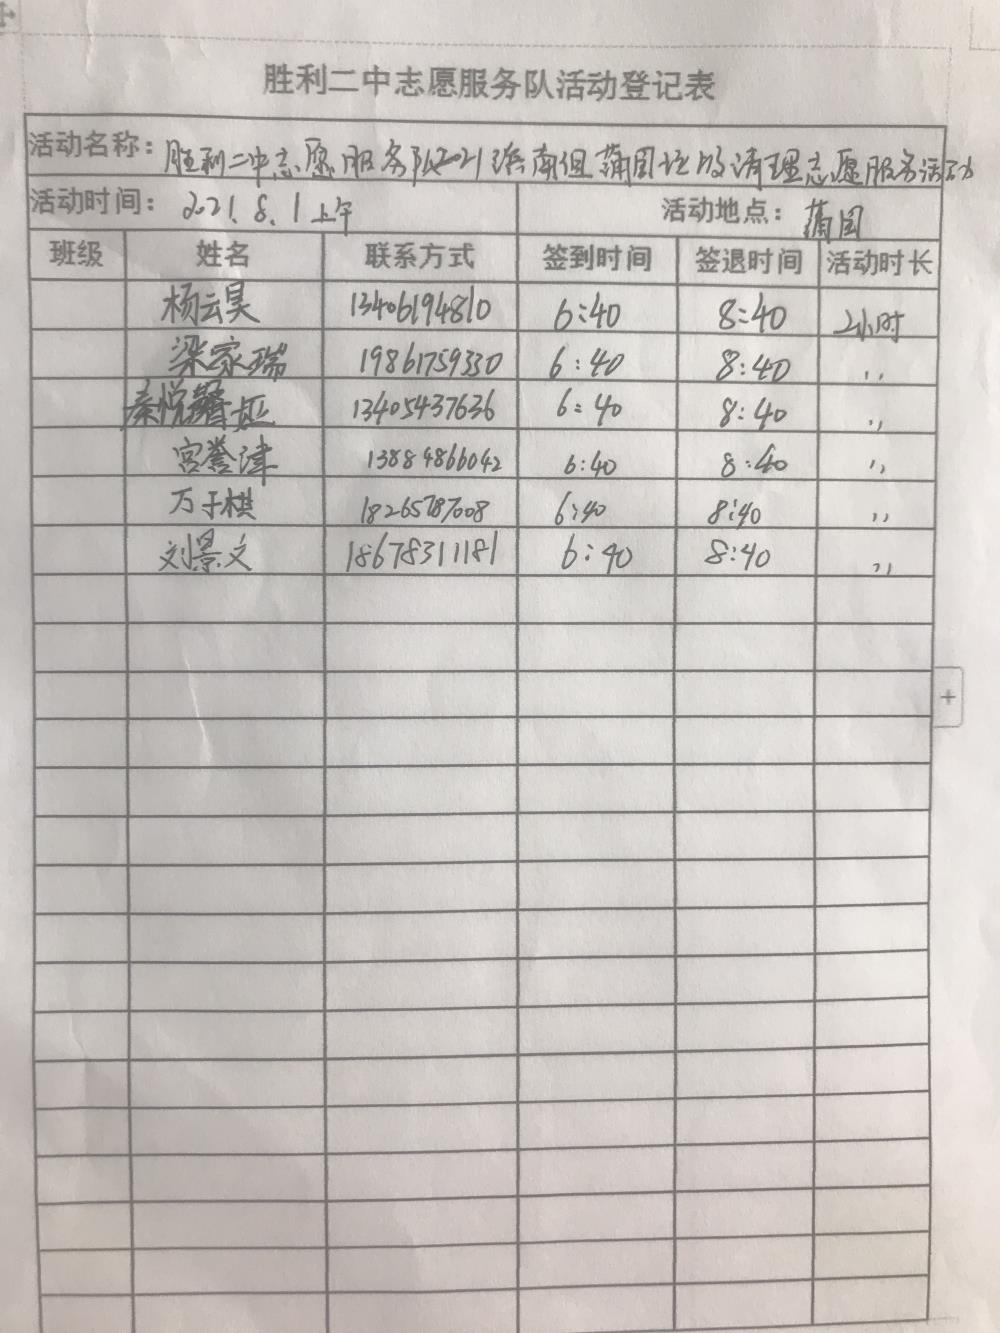 胜利二中志愿服务队活动登记表
活动名称：胜利二中志愿服务队2021滨南组蒲园垃圾清理志愿服务活动
活动时间：2021.8.1上午 活动地点：蒲园
班级 姓名 联系方式 签到时间 签退时间 活动时长
杨云昊 13406194810 6:40 8:40 2小时
梁家瑞 19861759330 6:40 8:40 ,,
秦悦 13405437636 6:40 8:40 ,,
宫誉津 13884866042 6:40 8:40 ,,
万子棋 18265787008 6:40 8:40 ,,
刘景文 18678311181 6:40 8:40 ,,